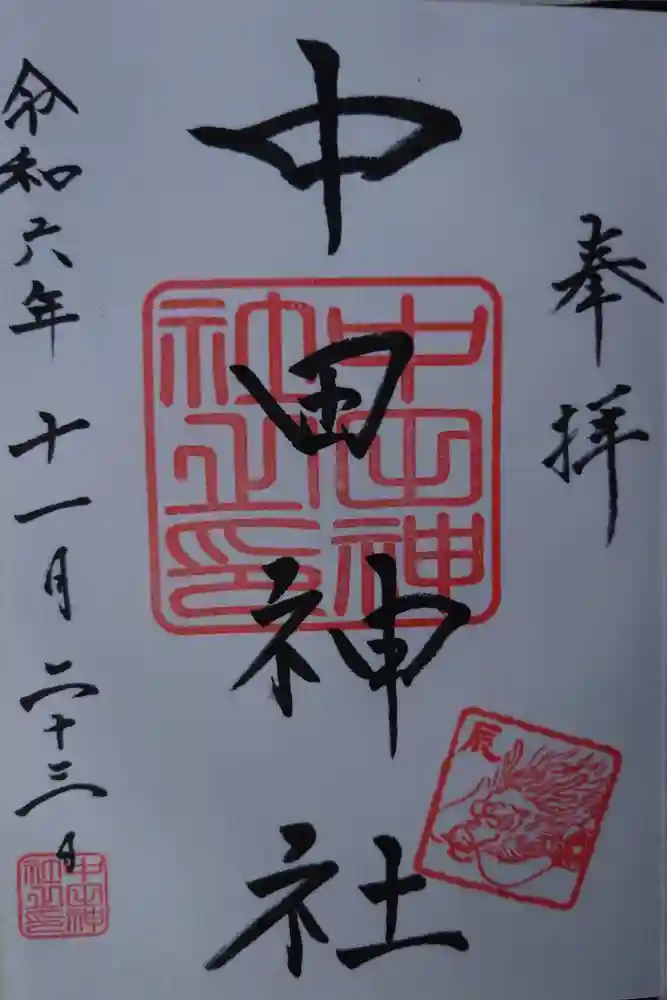 奉拝
中田神社
中田神
社之印
辰
令和六年十一月二十三日
中田神
社之印